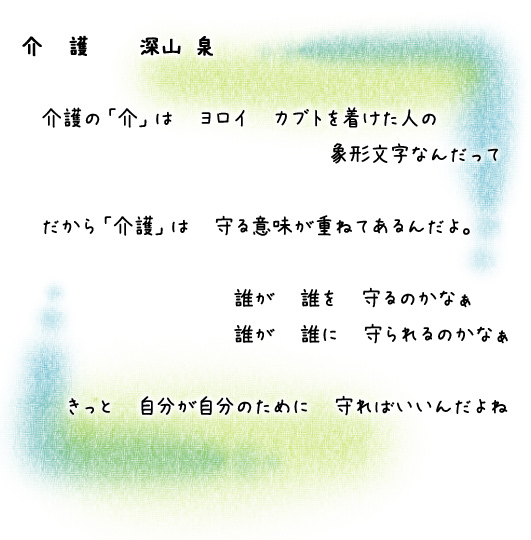 介　護　　深山 泉
介護の「介」は　ヨロイ　カブトを着けた人の
象形文字なんだって
だから「介護」は　守る意味が重ねてあるんだよ。
誰が　誰を　守るのかなぁ
誰が　誰に　守られるのかなぁ
きっと　自分が自分のために　守ればいいんだよね